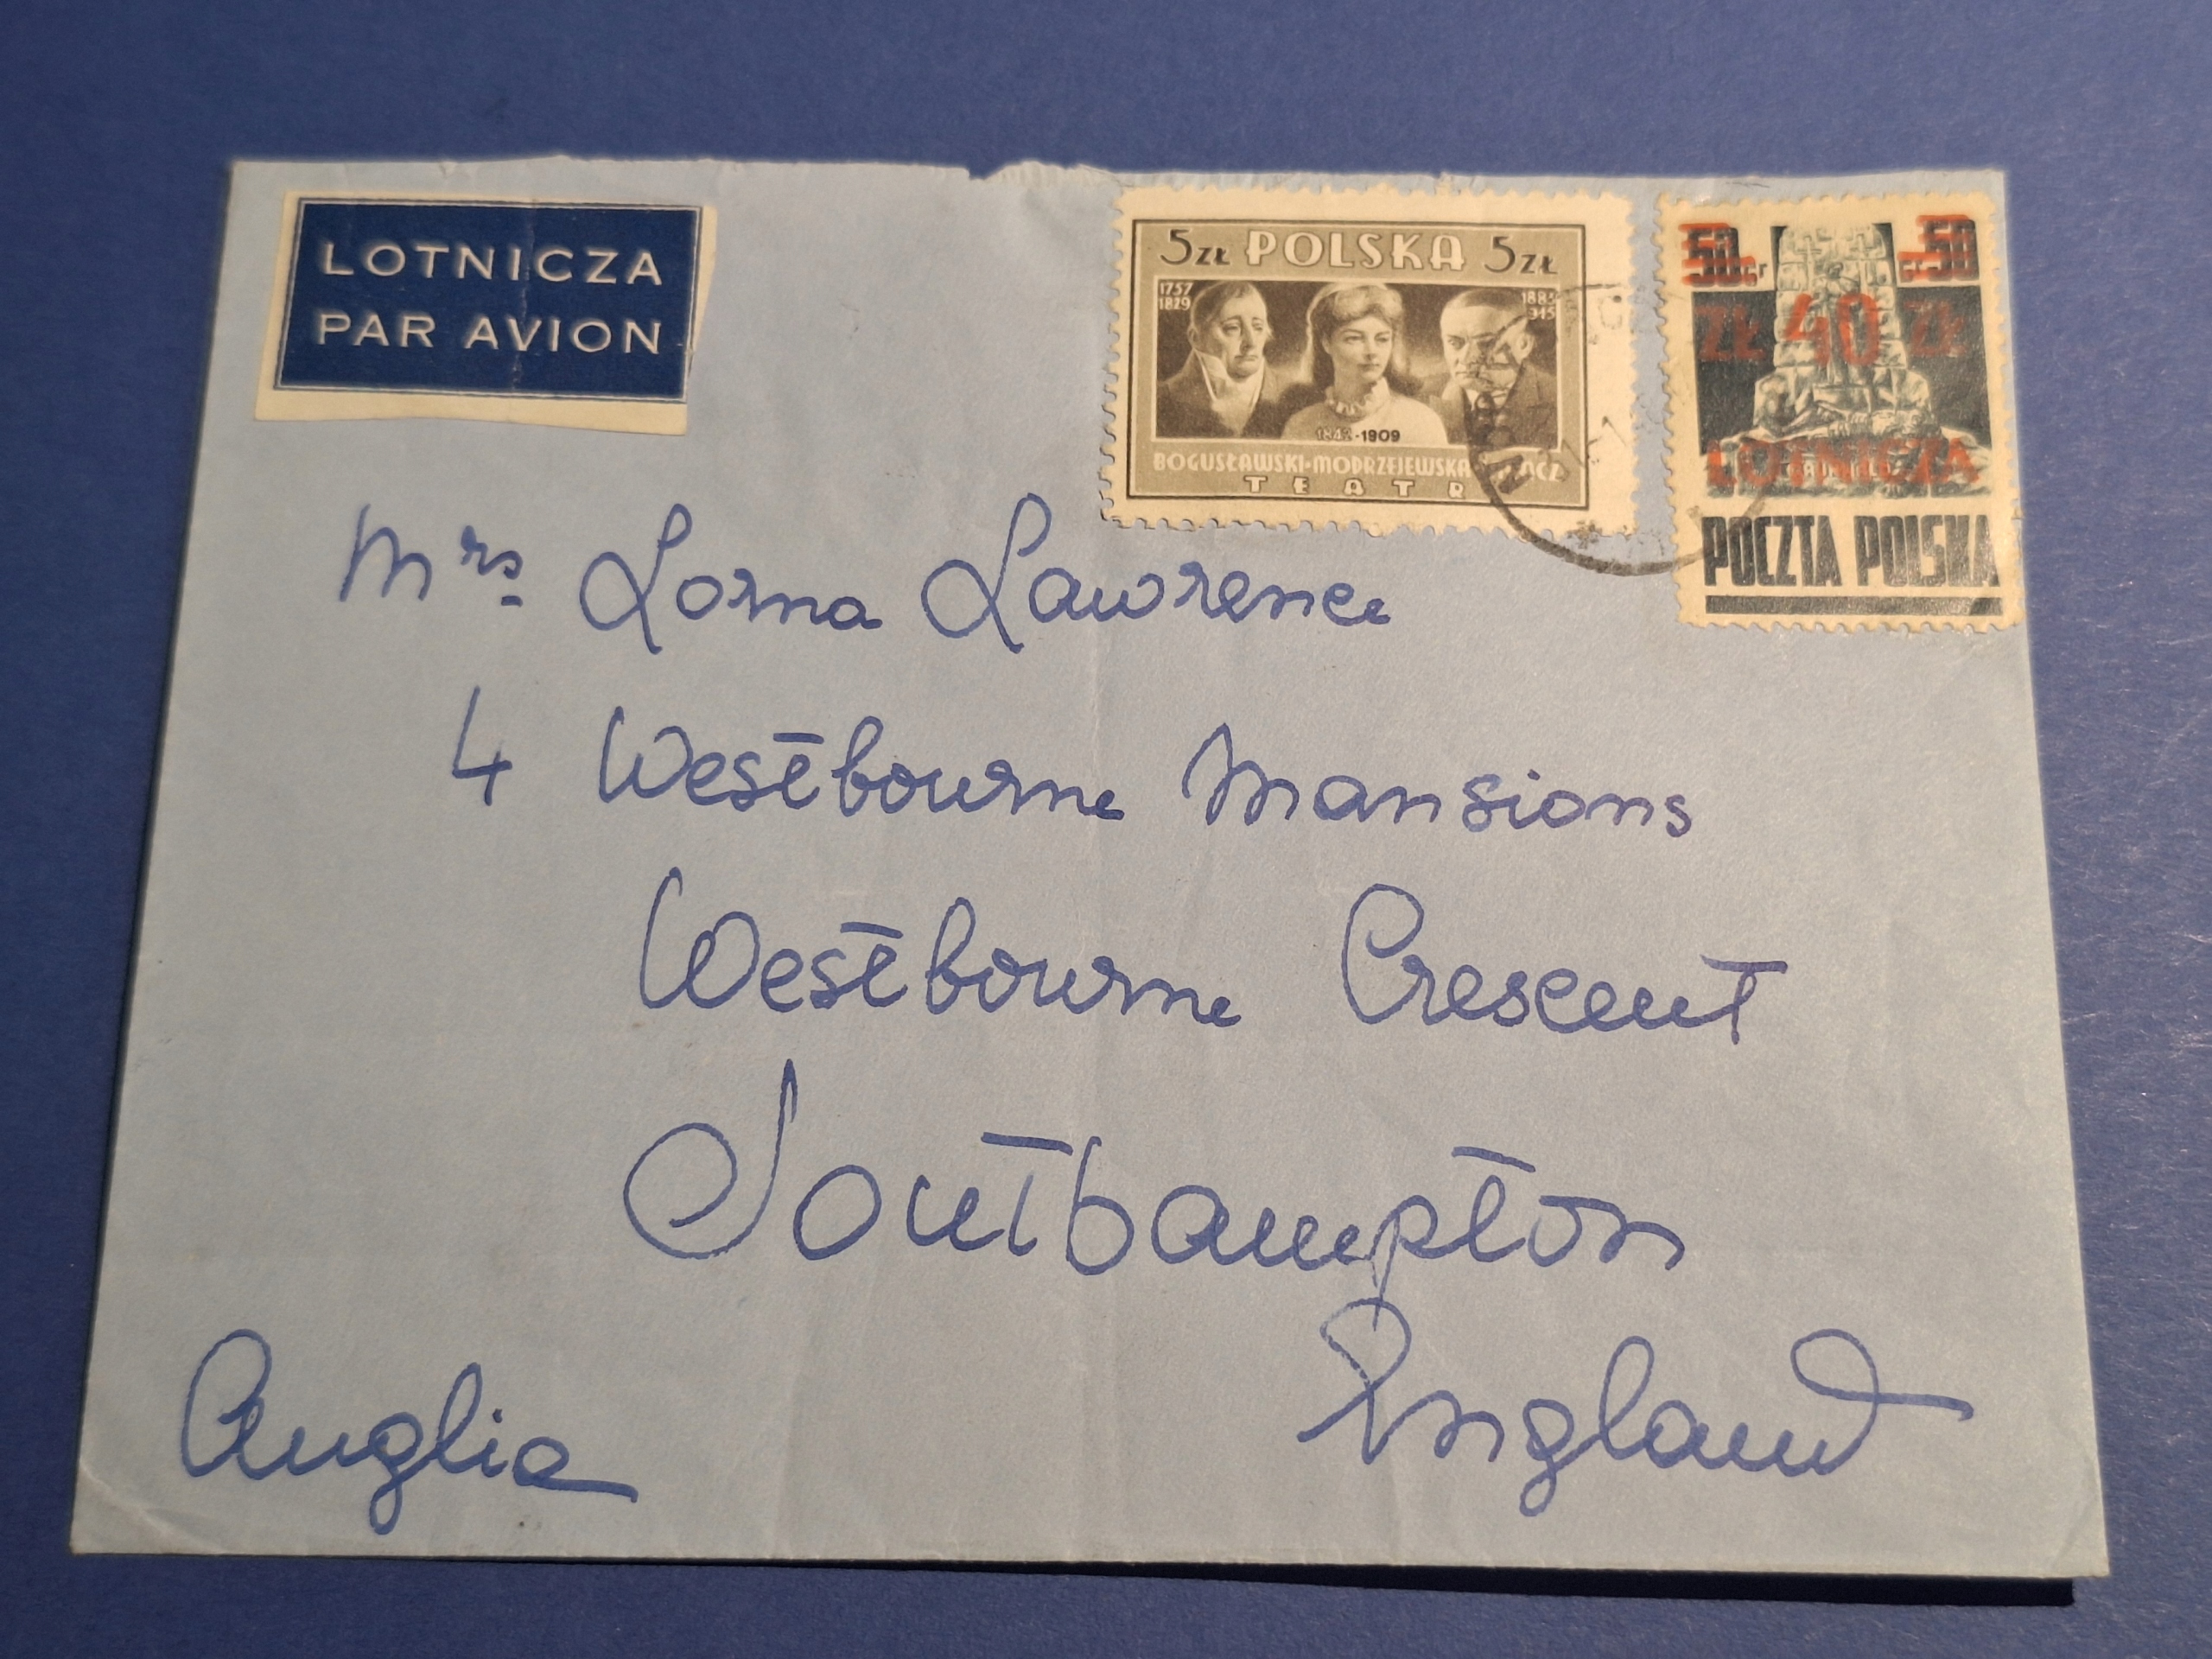 LOTNICZA
PAR AVION
5 ZŁ POLSKA 5 ZŁ
1757
1829
1842-1909
BOGUSŁAWSKI·MODRZEJEWSKA
TEATR
50 gr gr 50
ZŁ 40 ZŁ
LOTNICZA
POCZTA POLSKA
Mrs Lorna Lawrence
4 Westbourne Mansions
Westbourne Crescent
Southampton
Anglia England